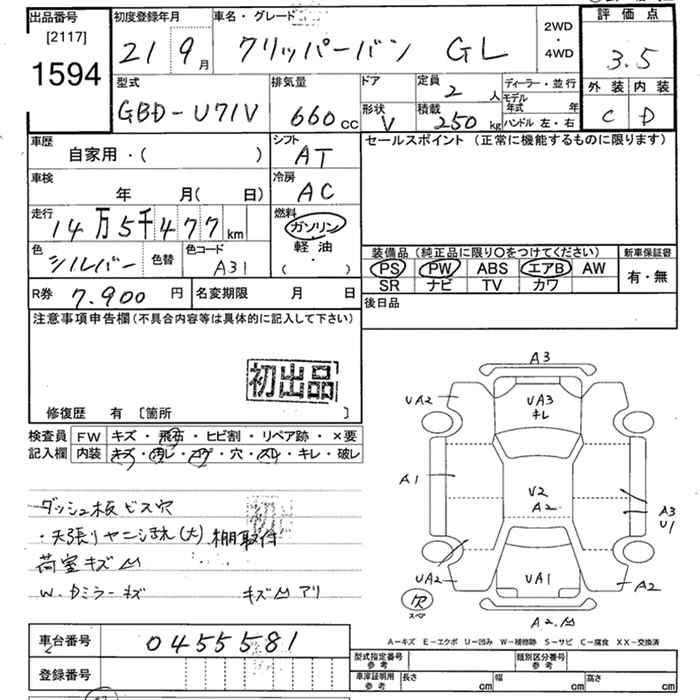 出品番号
[2117]
1594
初度登録年月
21 9月
車名・グレード
クリッパーバン GL
2WD
・
4WD
評価点
3.5
外装 内装
C D
型式
GBD-U71V
排気量
660cc
ドア
形状
V
定員
2人
積載
250kg
ディーラー・並行
モデル年式 年
ハンドル 左・右
車歴
自家用・( )
シフト
AT
セールスポイント (正常に機能するものに限ります)
車検
年 月( 日)
冷房
AC
走行
14万5千477km
燃料
ガソリン
・
軽油
( ・ )
色
シルバー
色替
色コード
A31
装備品(純正品に限り○をつけてください)
PS PW ABS エアB AW
SR ナビ TV カワ
新車保証書
有・無
R券 7.900円
名変期限 月 日
後日品
注意事項申告欄(不具合内容等は具体的に記入して下さい)
初出品
修復歴 有 [箇所 ]
検査員記入欄
FW キズ・飛石・ヒビ割・リペア跡・×要
内装 キズ・汚レ・コゲ・穴・スレ・キレ・破レ
ダッシュ板ビス穴
・天張りヤニヨゴれ(大) 棚取付
荷室キズ凹
W.Dミラーキズ キズ凹アリ
A3
UA2
UA3
キレ
A1
U2
A2
A3
U1
UA2
UA1
A2
スペア
A2.凹
A-キズ E-エクボ U-凹み W-補修跡 S-サビ C-腐食 XX-交換済
車台番号 0455581
登録番号
型式指定番号参考
類別区分番号参考
車庫証明用参考
長さ cm
幅 cm
高さ cm